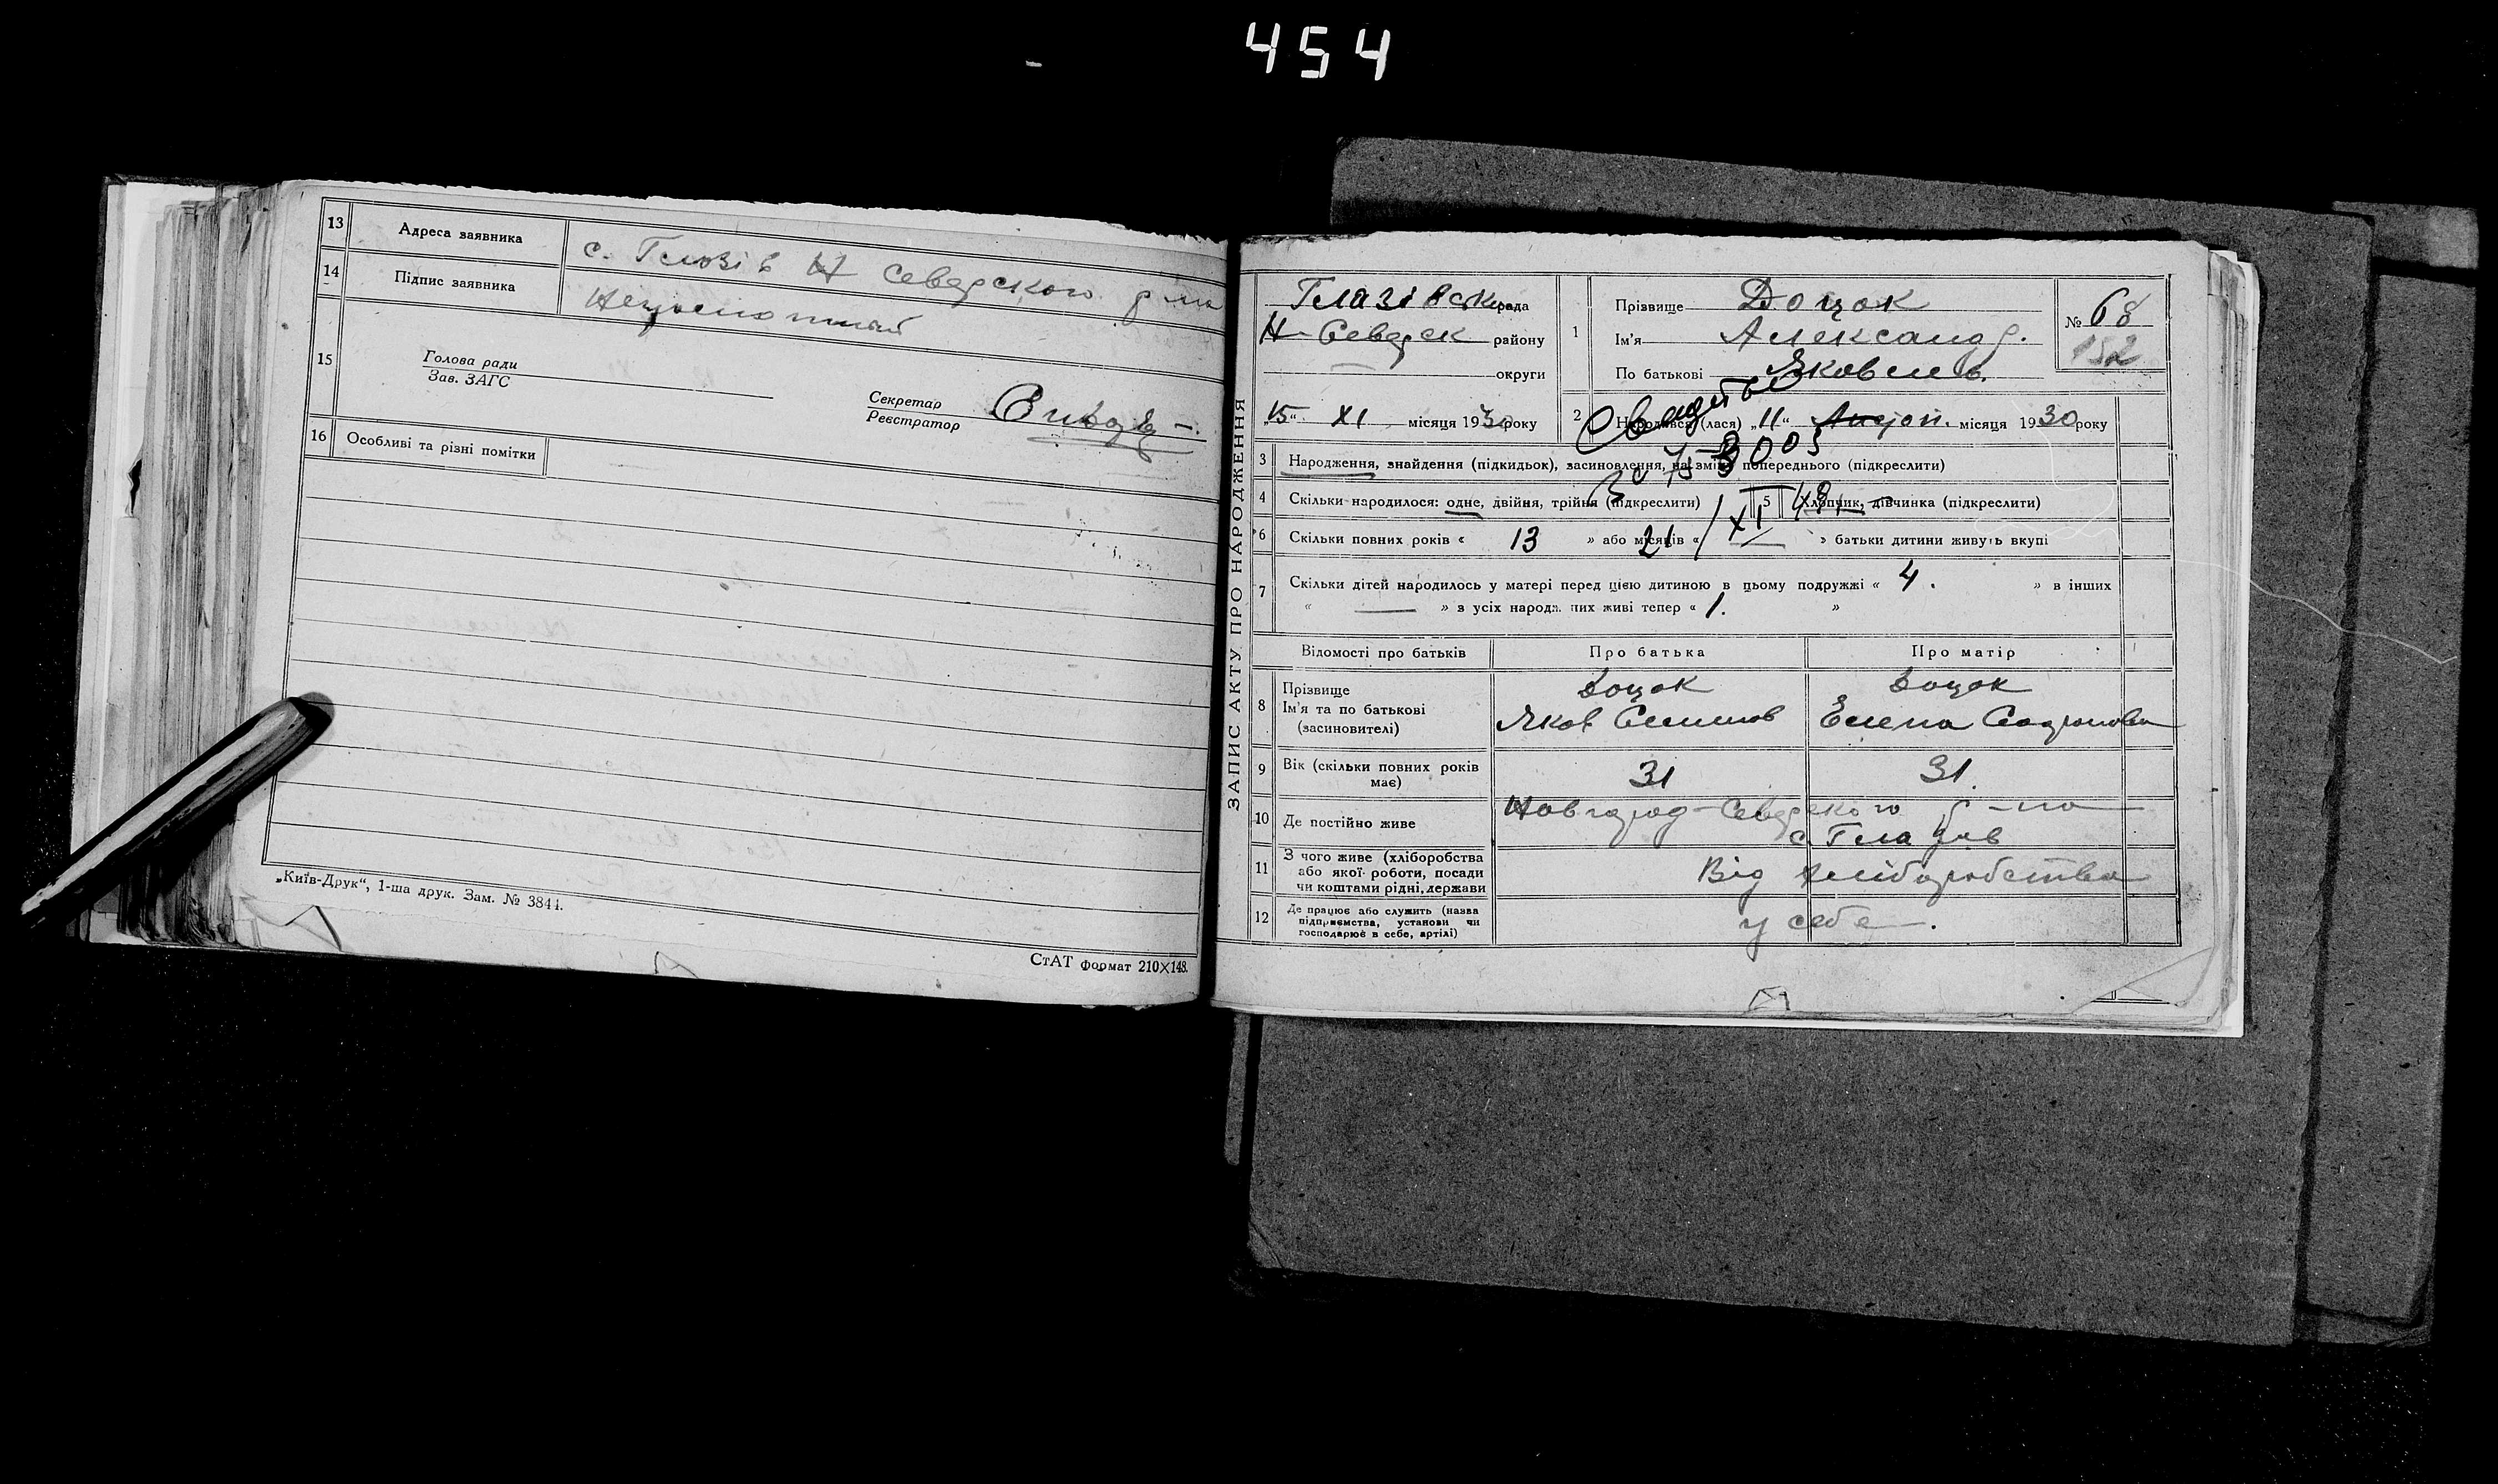 454
13 Адреса заявника с. Глазів Н Северского р-на
14 Підпис заявника
15 Голова ради
Зав. ЗАГС
Секретар
Реєстратор
16 Особливі та різні помітки
„Київ-Друк“, 1-ша друк. Зам. № 3844.
СтАТ формат 210×148.
ЗАПИС АКТУ ПРО НАРОДЖЕННЯ
Глазівск рада
Н-Северск району
округи
„15“ XI місяця 1930 року
1 Прізвище Доцок
Ім'я Александр.
По батькові Яковлев.
№ 68
152
2 Народився (лася) „11“ місяця 1930 року
3 Народження, знайдення (підкидьок), засиновлення, на зміну попереднього (підкреслити)
4 Скільки народилося: одне, двійня, трійня (підкреслити) 5 Хлопчик, дівчинка (підкреслити)
6 Скільки повних років « 13 » або місяців « — » батьки дитини живуть вкупі
7 Скільки дітей народилось у матері перед цією дитиною в цьому подружжі « 4. » в інших
« — » з усіх народж. них живі тепер « 1. »
Відомості про батьків Про батька Про матір
8 Прізвище Доцок Доцок
Ім'я та по батькові Яков Елена
(засиновителі)
9 Вік (скільки повних років має) 31 31.
10 Де постійно живе Новгород-Северского р-на
с. Глазів
11 З чого живе (хліборобства або якої роботи, посади чи коштами рідні, держави Від хліборобства
12 Де працює або служить (назва підприємства, установи чи господарює в себе, артілі) у себе.